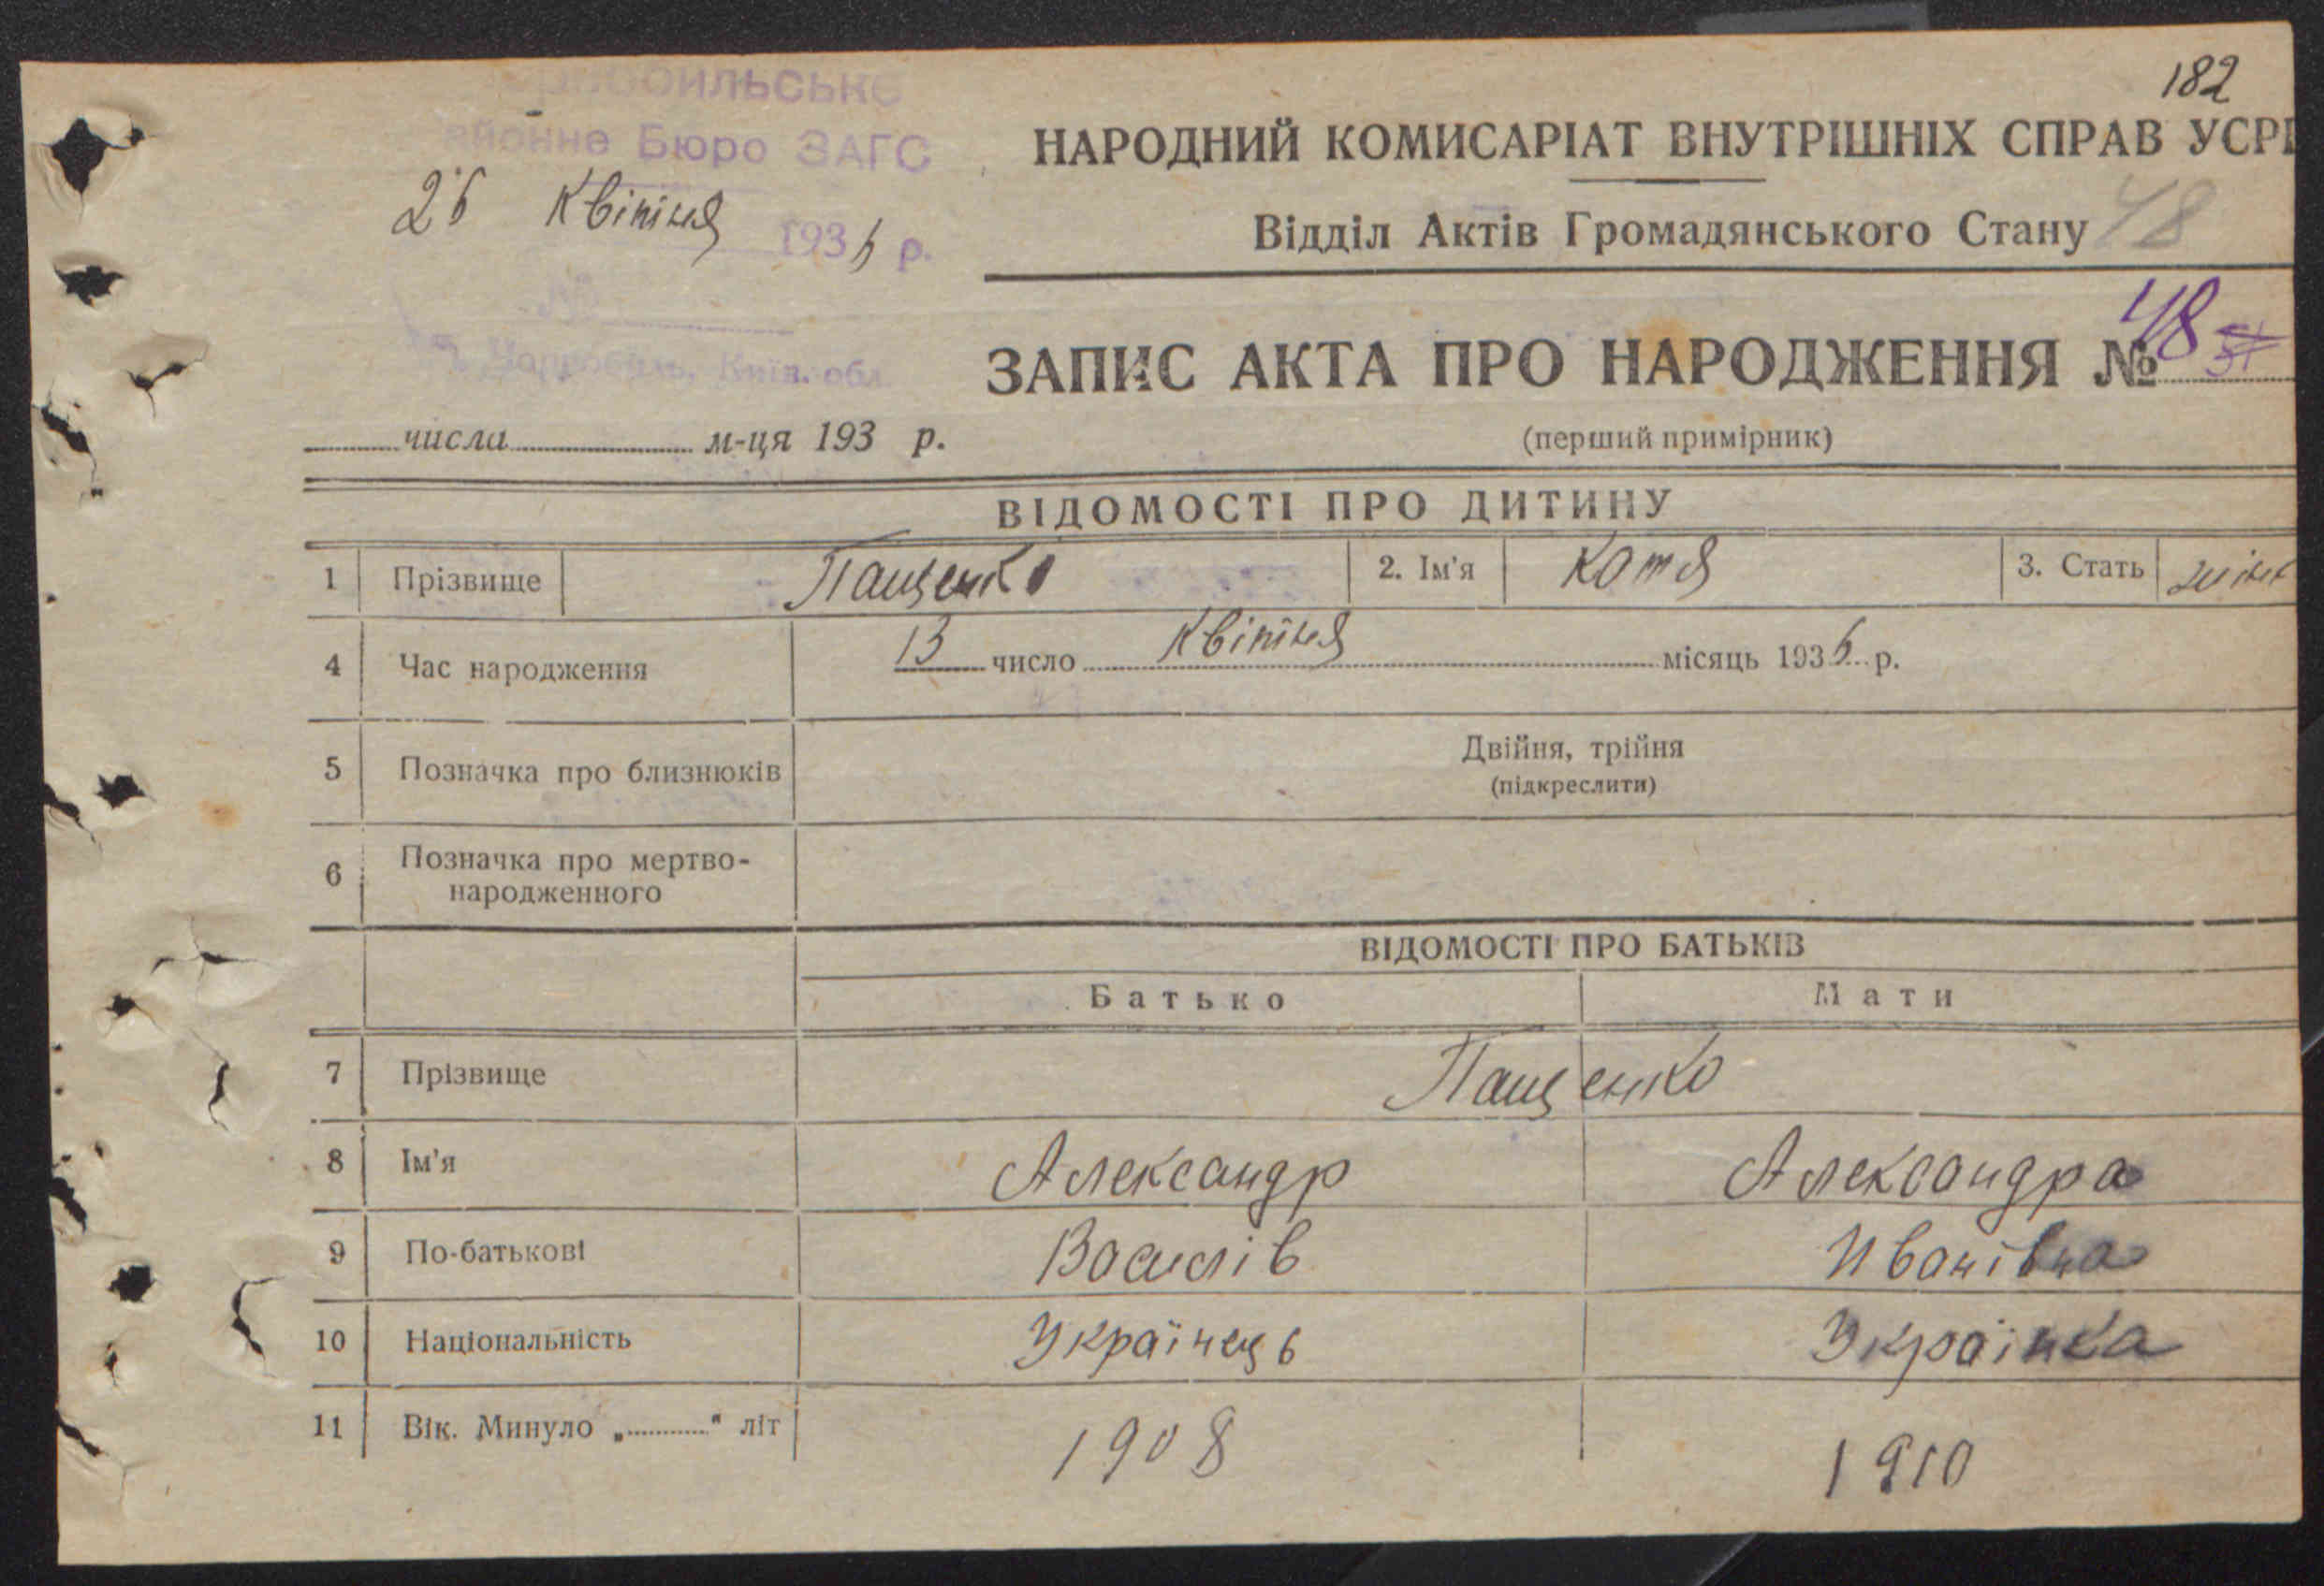 182
районне Бюро ЗАГС
НАРОДНИЙ КОМИСАРІАТ ВНУТРІШНІХ СПРАВ УСРР
26 Квітня 1936 р.
Відділ Актів Громадянського Стану 48
Київ. обл.
ЗАПИС АКТА ПРО НАРОДЖЕННЯ № 48
числа м-ця 193 р.
(перший примірник)
ВІДОМОСТІ ПРО ДИТИНУ
1 Прізвище Пащенко 2. Ім'я Катя 3. Стать жіноч
4 Час народження 13 число Квітня місяць 1936 р.
5 Позначка про близнюків Двійня, трійня
(підкреслити)
6 Позначка про мертво-
народженного
ВІДОМОСТІ ПРО БАТЬКІВ
Батько Мати
7 Прізвище Пащенко
8 Ім'я Александр Александра
9 По-батькові Василів Иванівна
10 Національність Українець Українка
11 Вік. Минуло „............" літ 1908 1910